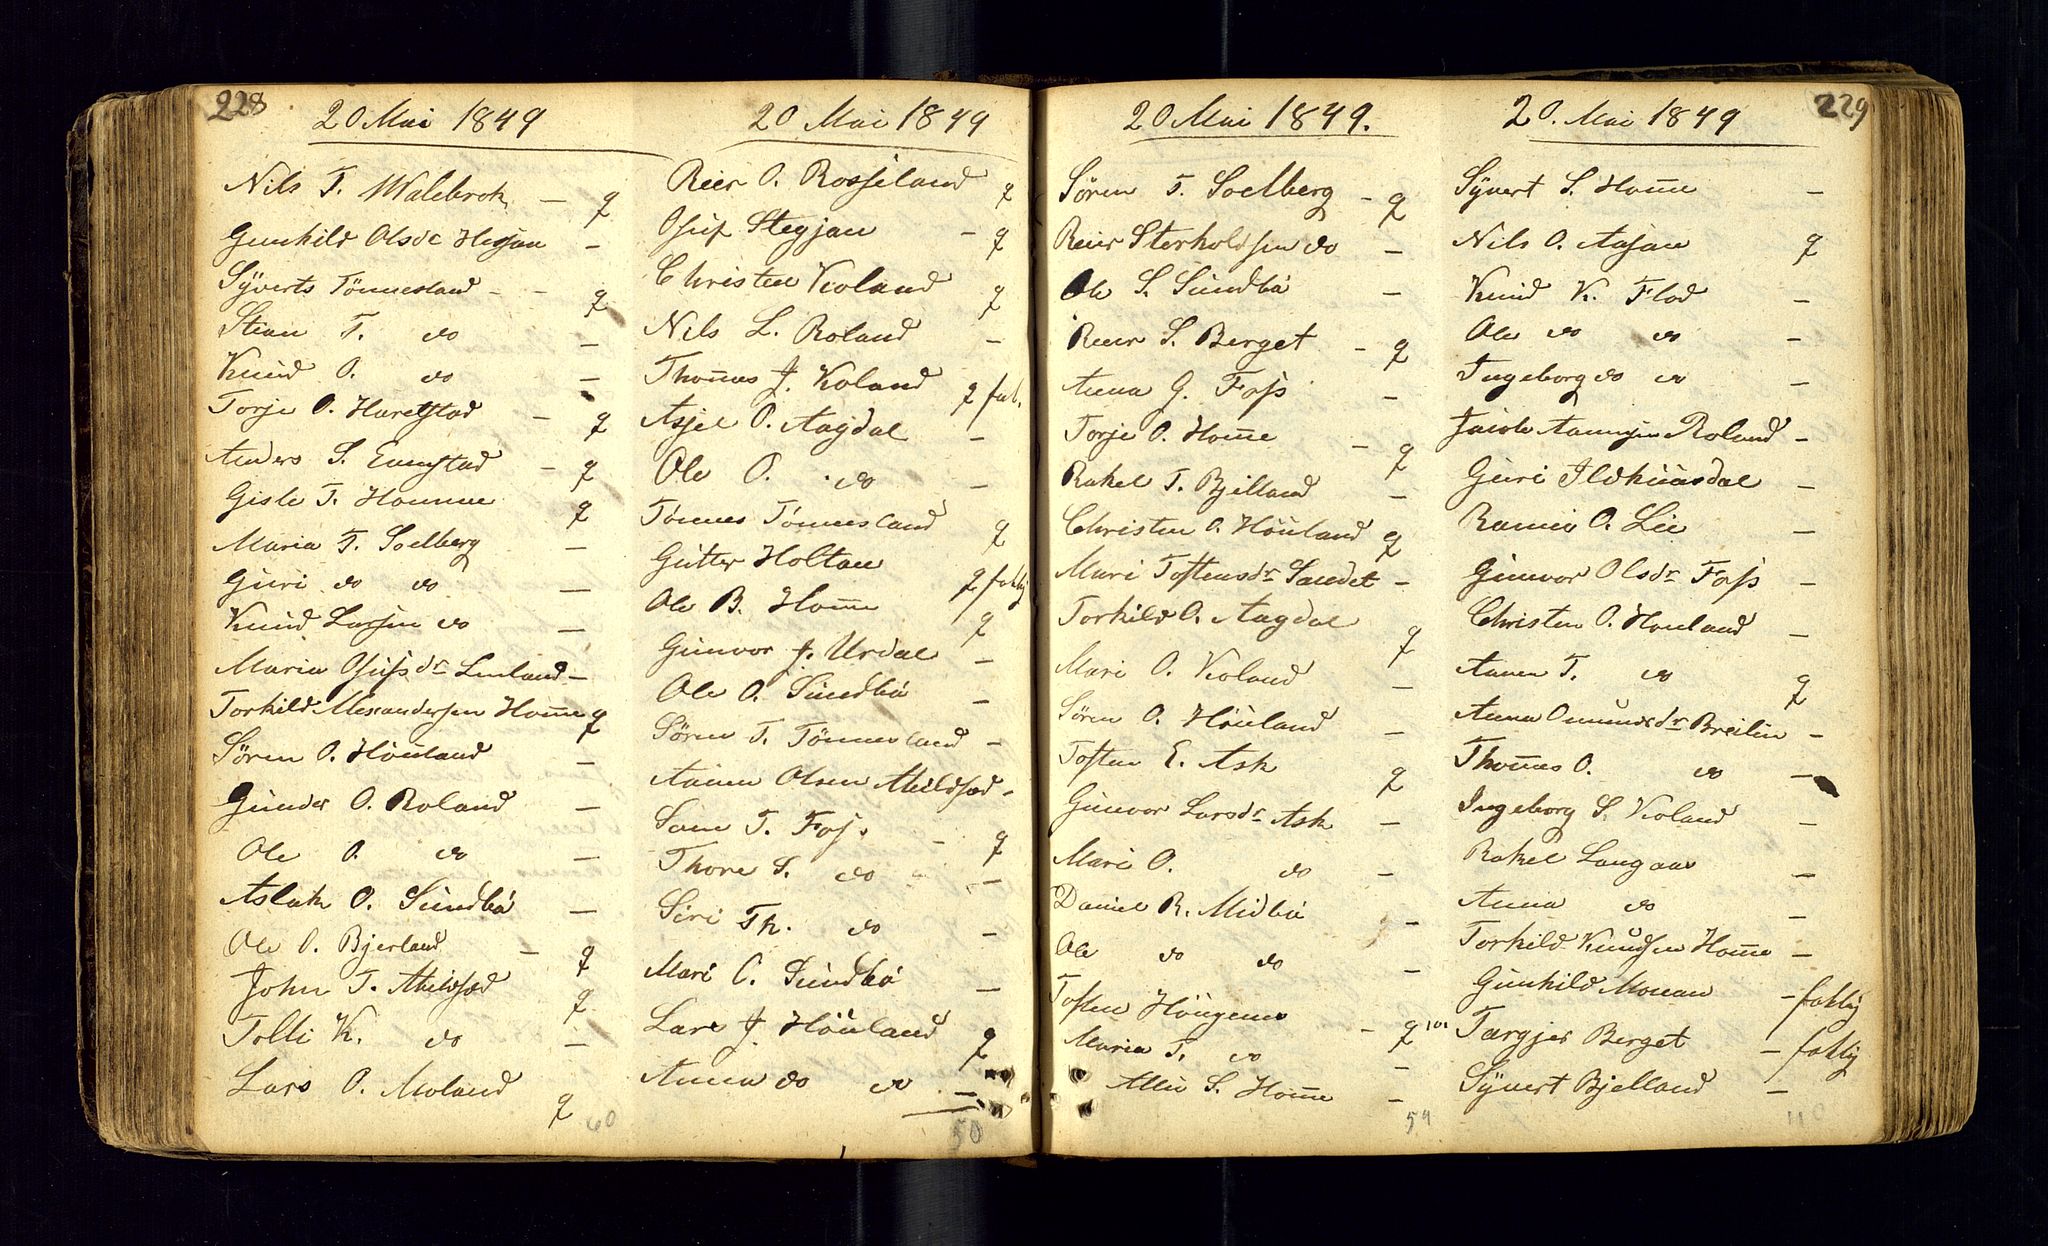 228
20 Mai 1849
Nils T. Walebrok — q
Gunhild Olsdr Hesjan —
Syverts Tönnesland - - q
Stian T. do —
Knud O. do —
Torje O. Harestad — q
Anders S. Eunestad — q
Gisle T. Homme q
Maria T. Soelberg —
Guri do do —
Knud Larsen do —
Maria Osufsdr Linland —
Torkild Alexandersen Hom̄e q
Sören O. Höuland —
Gunder O. Roland —
Ole O. do —
Aslak O. Sundbö —
Ole O. Bjerland — q
John T. Abildsöd q
Tolli K. do —
Lars O. Moland q
60
20 Mai 1849
Reier O. Rosseland q
Osuf Stegjan — q
Christen Koland q
Nils L. Roland —
Thom̄es J. Koland q fat.
Asjel O. Aagdal —
Ole O. do —
Tönnes Tönnesland q
Gutter Holtan q fattig
Ole B. Hom̄e q
Gunvor J. Urdal —
Ole O. Sundbö —
Sören T. Tönnesland —
Aanen Olsen Abildsöd -
Sam T. Foss — q
Thore S. do —
Siri Th. do —
Mari O. Sundbö —
Lars J. Höuland q
Anna do do —
50
20 Mai 1849.
Sören T. Soelberg - q
Reier Sterkoldsen do —
Ole S. Sundbö —
Reier S. Berget - q
Anna G. Foss -
Torje O. Hom̄e — q
Rakel T. Bjelland —
Christen O. Höuland q
Mari Tostensdr Sandet -
Torkild O. Aagdal q
Mari O. Koland —
Sören O. Höuland —
Tosten E. Ask q
Gunvor Larsdr Ask —
Mari O. do —
Daniel R. Midbö —
Ole do do —
Tosten Höugene - q
Maria T. do —
Alli S. Hom̄e —
59
229
20. Mai 1849
Syvert S. Hom̄e —
Nils O. Aasan q
Knud K. Flod —
Ole do do —
Ingeborg do do —
Jacob Aanensen Roland -
Guri Ildhuusdal —
O. Lie —
Gunvor Olsdr Foss —
Christen O. Houland —
Aanen T. do q
Anna Omundsdr Breilin -
Thom̄es O. do —
Ingeborg S. Koland —
Rakel Langaas —
Anna do —
Torkild Knudsen Hom̄e —
Gunhild Monan - fattig
101 Targjer Berget - fattig
Syvert Bjelland —
110